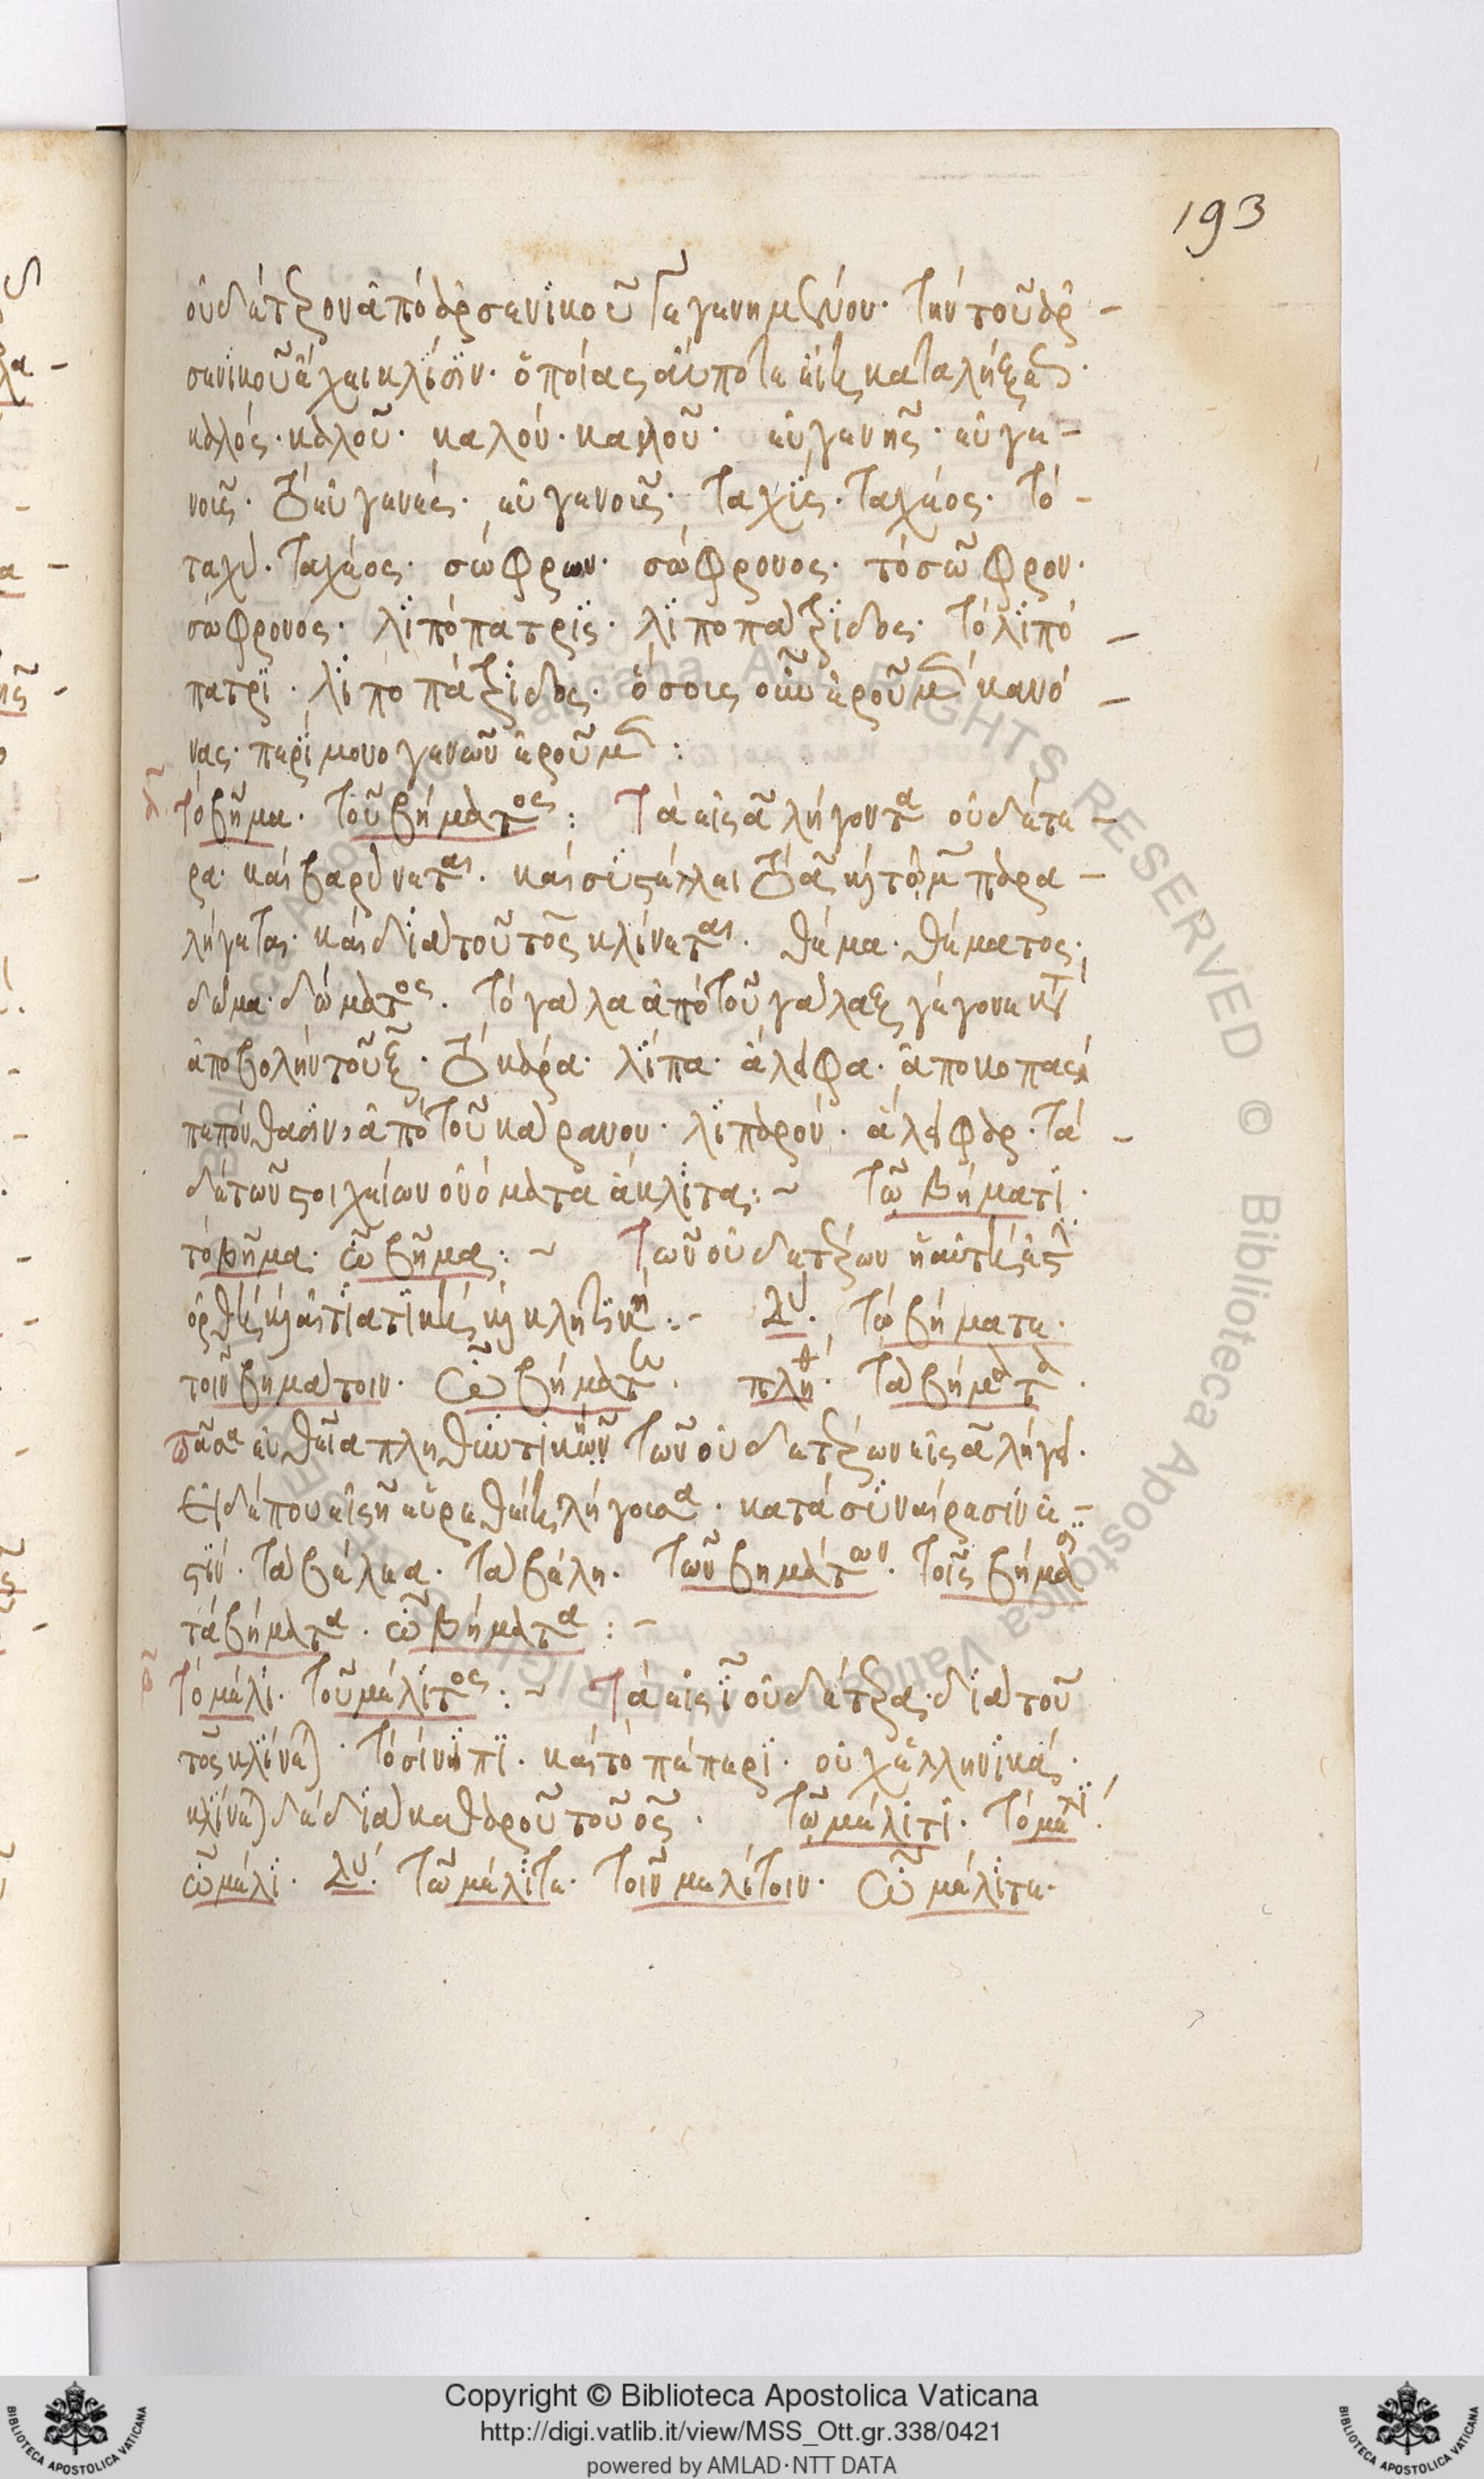 193
οὐδέτερον ἀπὸ ἀρσενϊκοῦ γεγενημένον· τὴν τοῦ ἀρ –
σενϊκοῦ ἔχει κλΐσϊν· ὁποίας ἄν ποτε εἴη καταλήξεως·
καλός· καλοῦ· καλόν· καλοῦ· εὐγενής· εὐγε –
νοῦς· τὸ εὐγενές· εὐγενοῦς· ταχΰς· ταχέος· τὸ –
ταχύ· ταχέος· σώφρων· σώφρονος· τὸ σῶφρον·
σώφρονος· λϊπόπατρϊς· λϊποπάτρϊδος· τὸ λϊπό –
πατρϊ· λϊποπάτρϊδος· ὅσους οὖν ἐροῦμεν κανό –
νας· περὶ μονογενῶν ἐροῦμεν :
τὸ βῆμα· τοῦ βήματος : Τὰ εἰς α λήγοντα οὐδέτε –
ρα· καὶ βαρύνεται· καὶ συστέλλει τὸ α καὶ τῷ μ παρα –
λήγεται· καὶ διὰ τοῦ τος κλίνεται· θέμα· θέματος·
δῶμα· δώματος· τὸ γάλα ἀπὸ τοῦ γάλαξ γέγονε κατὰ
ἀποβολὴν τοῦ ξ· τὸ κάρα· λΐπα· ἄλειφα· ἀποκοπὰς
πεπόνθασιν, ἀπὸ τοῦ κάρανον· λϊπαρόν· ἄλειφαρ· τὰ –
δὲ τῶν στοιχείων ὀνόματα ἄκλϊτα : ~ τῷ βήματϊ·
τὸ βῆμα· ὦ βῆμα : ~ Τῶν οὐδετέρων ἡ αὐτή ἐστϊν
ὀρθὴ καὶ αἰτϊατϊκὴ καὶ κλητϊκή : – δυ· τὼ βήματε·
τοῖν βημάτοιν· ὦ βήματε· πλη· τὰ βήματα·
πᾶσα εὐθεῖα πληθϋντϊκῶν τῶν οὐδετέρων εἰς α λήγει·
εἰ δέ που εἰς η εὑρεθείη λήγουσα· κατὰ συναίρεσίν ἐ –
στϊν· τὰ βέλεα· τὰ βέλη· τῶν βημάτων· τοῖς βήμασι
τὰ βήματα· ὦ βήματα : –
τὸ μέλϊ· τοῦ μέλϊτος : ~ Τὰ εἰς ϊ οὐδέτερα· διὰ τοῦ
τος κλΐνεται· τὸ σίνηπϊ· καὶ τὸ πέπερϊ· οὐχ ἑλληνϊκά·
κλΐνεται δὲ διὰ καθαροῦ τοῦ ος· τῷ μέλϊτϊ· τὸ μέλϊ·
ὦ μέλϊ· δυ· τὼ μέλϊτε· τοῖν μελίτοιν· ὦ μέλϊτε·
Copyright © Biblioteca Apostolica Vaticana
http://digi.vatlib.it/view/MSS_Ott.gr.338/0421
powered by AMLAD·NTT DATA